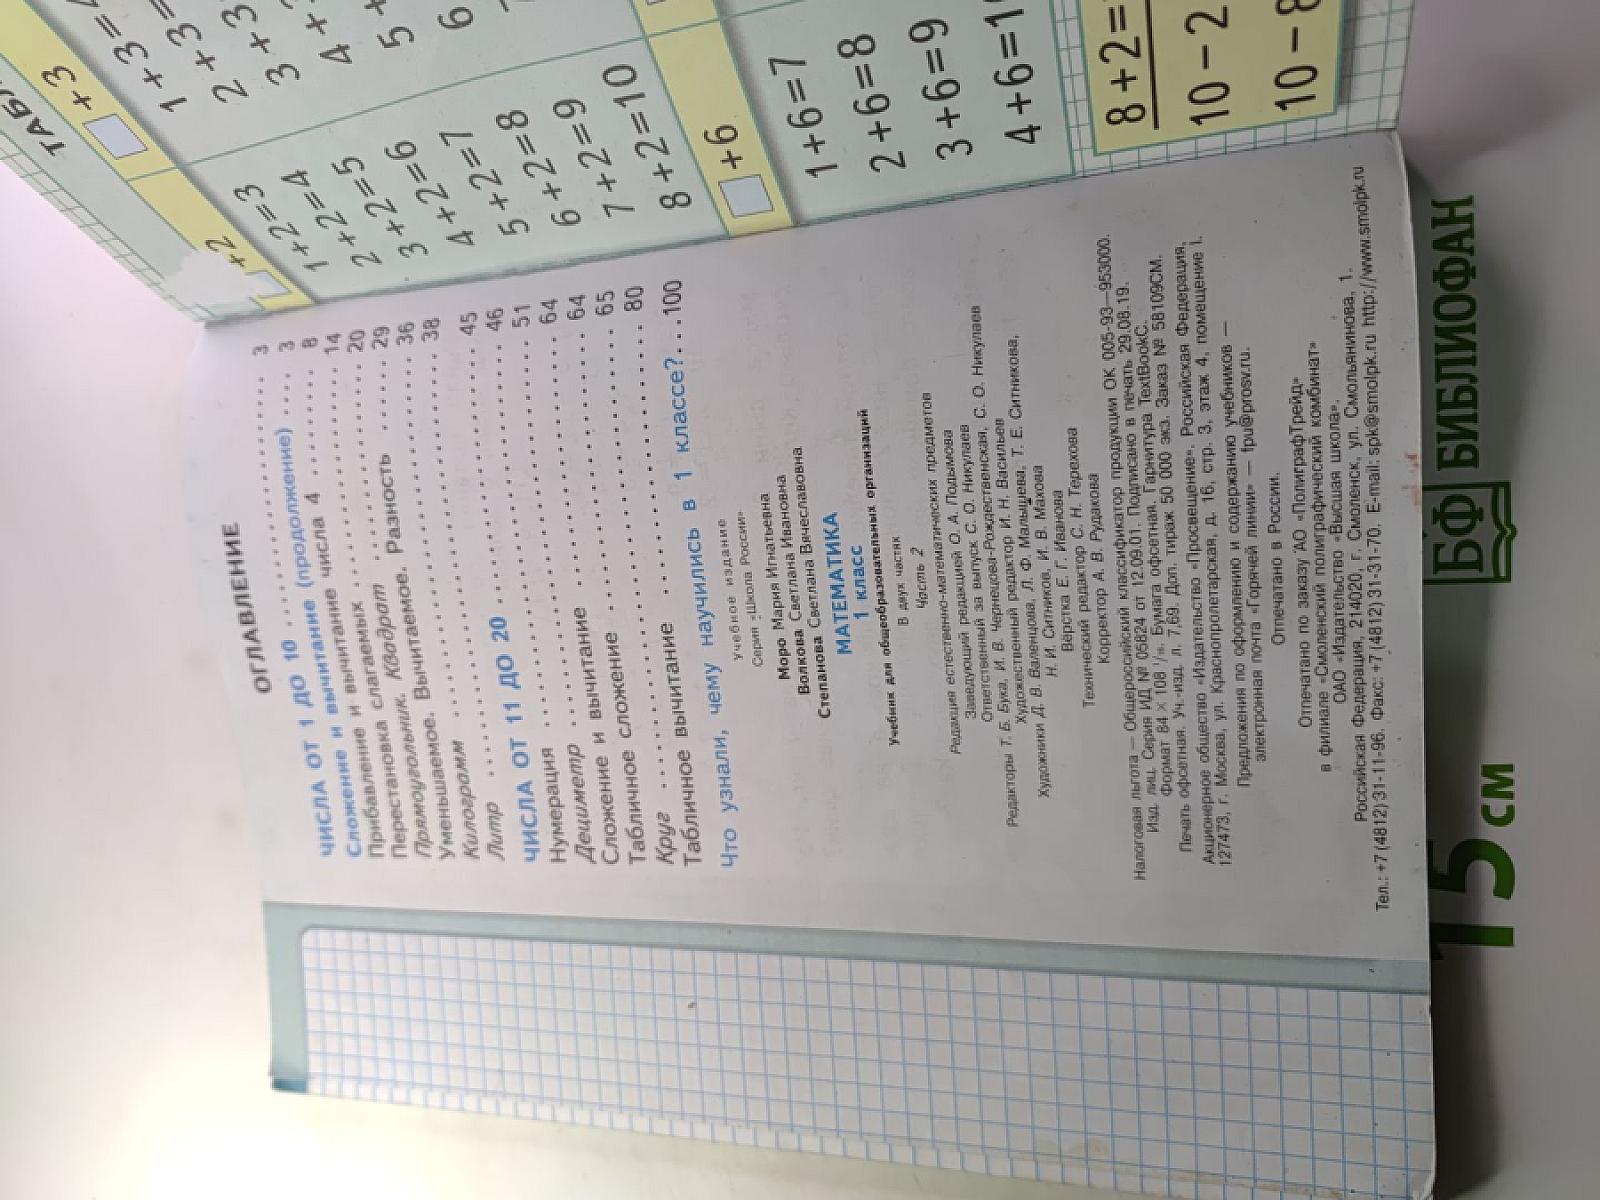 ОГЛАВЛЕНИЕ
ЧИСЛА ОТ 1 ДО 10 ........................ 3
Сложение и вычитание (продолжение) .... 3
Прибавление и вычитание числа 4 ........ 8
Перестановка слагаемых ................ 14
Прямоугольник. Квадрат ................ 20
Уменьшаемое. Вычитаемое. Разность ...... 29
Килограмм ................ 36
Литр ................ 38
45
46
ЧИСЛА ОТ 11 ДО 20 ................ 51
Нумерация ................ 64
Дециметр ................ 64
Сложение и вычитание ................ 65
Табличное сложение ................ 80
Круг
Табличное вычитание
Что узнали, чему научились в 1 классе? ... 100
Учебное издание
Серия «Школа России»
Моро Мария Игнатьевна
Волкова Светлана Ивановна
Степанова Светлана Вячеславовна
МАТЕМАТИКА
1 класс
Учебник для общеобразовательных организаций
В двух частях
Часть 2
Редакция естественно-математических предметов
Заведующий редакцией О. А. Подымова
Ответственный за выпуск С. О. Никулаев
Редакторы Т. Б. Бука, И. В. Чернецова-Рождественская, С. О. Никулаев
Художественный редактор И. Н. Васильев
Художники Д. В. Валенцова, Л. Ф. Малышева, Т. Е. Ситникова,
Н. И. Ситников, И. В. Махова
Вёрстка Е. Г. Иванова
Технический редактор С. Н. Терехова
Корректор А. В. Рудакова
Налоговая льгота — Общероссийский классификатор продукции ОК 005-93—953000.
Изд. лиц. Серия ИД № 05824 от 12.09.01. Подписано в печать 29.08.19.
Формат 84 × 108 1/16. Бумага офсетная. Гарнитура TextBookC.
Печать офсетная. Уч.-изд. л. 7,69. Доп. тираж 50 000 экз. Заказ № 58109СМ.
Акционерное общество «Издательство «Просвещение». Российская Федерация,
127473, г. Москва, ул. Краснопролетарская, д. 16, стр. 3, этаж 4, помещение I.
Предложения по оформлению и содержанию учебников —
электронная почта «Горячей линии» — fpu@prosv.ru.
Отпечатано в России.
Отпечатано по заказу АО «ПолиграфТрейд»
в филиале «Смоленский полиграфический комбинат»
ОАО «Издательство «Высшая школа».
Российская Федерация, 214020, г. Смоленск, ул. Смольянинова, 1.
Тел.: +7 (4812) 31-11-96. Факс: +7 (4812) 31-31-70. E-mail: spk@smolpk.ru http://www.smolpk.ru
+2
1+2=3
2+2=4
3+2=5
4+2=6
5+2=7
6+2=8
7+2=9
8+2=10
+3
1+3=4
2+3=
3+3
4+
5+
6
+6
1+6=7
2+6=8
3+6=9
4+6=1
8+2=
10−2
10−8
15 см
БФ БИБЛИОФАН